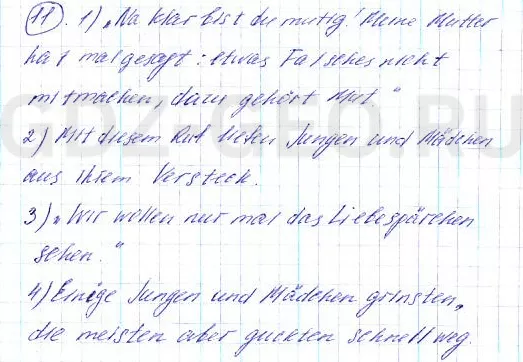 11. 1) „Na klar bist du mutig! Meine Mutter
hat mal gesagt: etwas Falsches nicht
mitmachen, dazu gehört Mut.“
2) Mit diesem Ruf liefen Jungen und Mädchen
aus ihrem Versteck.
3) „Wir wollen nur mal das Liebespärchen
sehen.“
4) Einige Jungen und Mädchen grinsten,
die meisten aber guckten schnell weg.